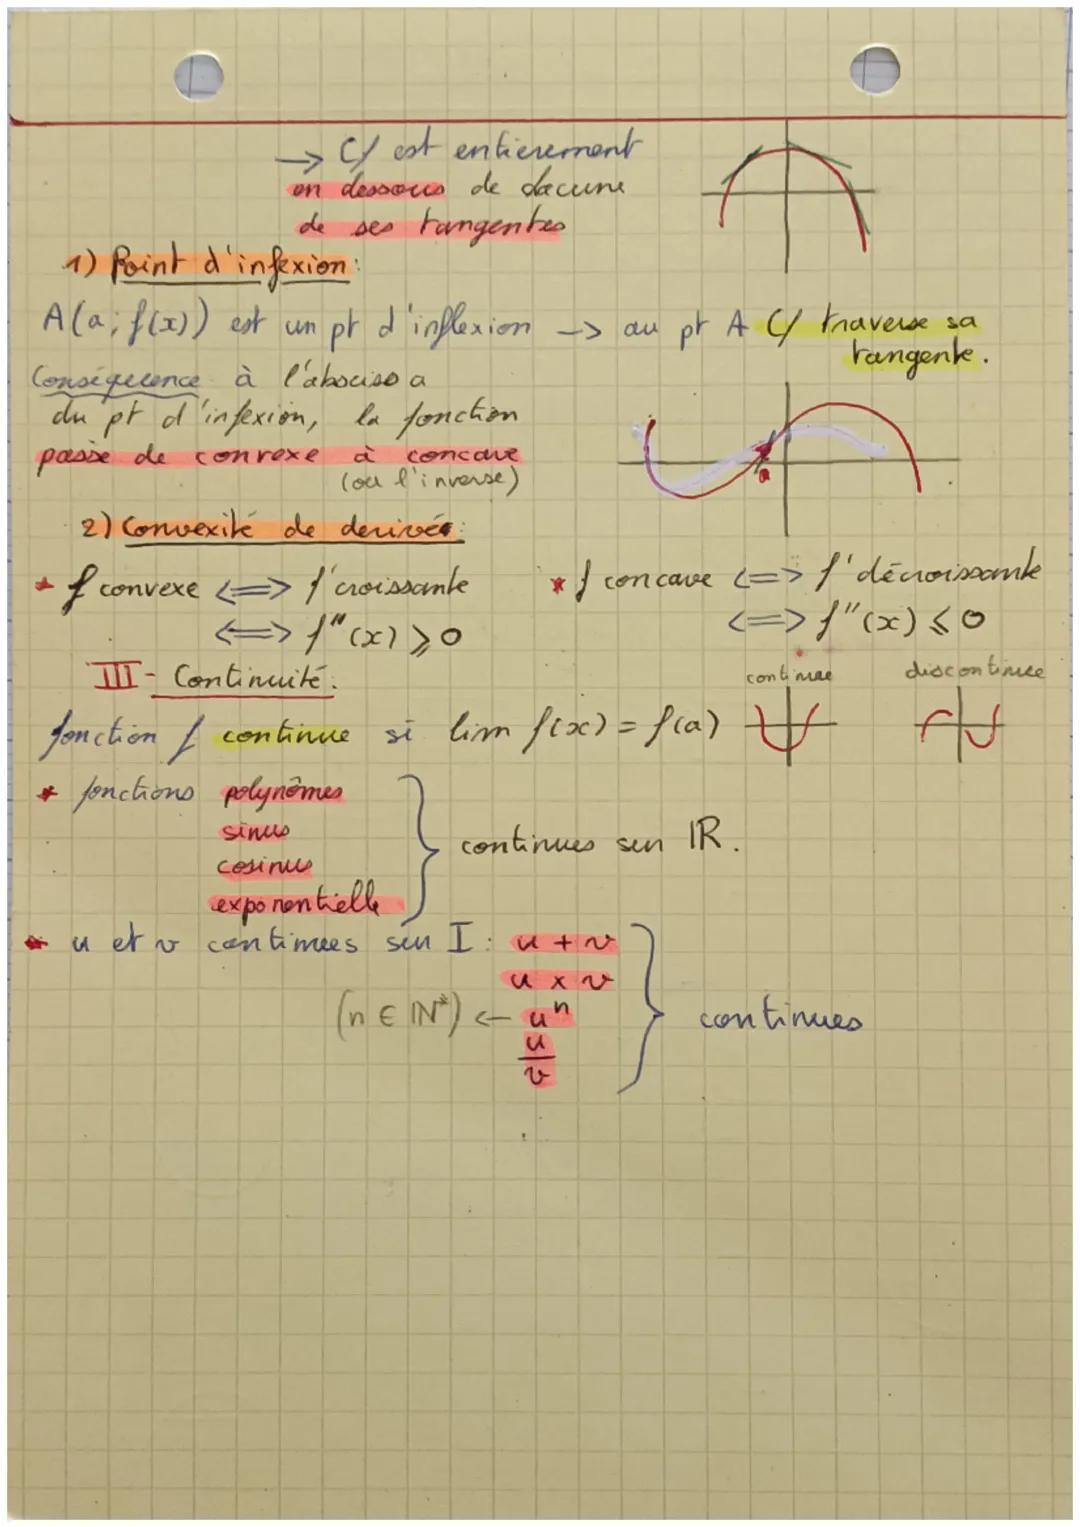 → Cf est entièrement
en dessous de dacune
de ses tangentes
1) Point d'infexion:
A(a; f(x)) est un pt d'inflexion -> au pt A Cf traverse sa
tangente.
Conséquence à l'absciss a
du pt d'infexion, la fonction
passe de convexe à concave
(ou l'inverse)
a
2) Convexité de derivée:
* f convexe <=> f' croissante
<=> f"(x) ⩾ 0
* f concave <=> f' décroissante
<=> f"(x) ⩽ 0
III- Continuité.
continue discontinue
fonction f continue si lim f(x) = f(a)
* fonctions polynômes
sinus
cosinus
exponentielle
} continues sur IR.
* u et v continues sur I: u + v
u x v
(n ∈ IN*) <- uⁿ
u
v
} continues